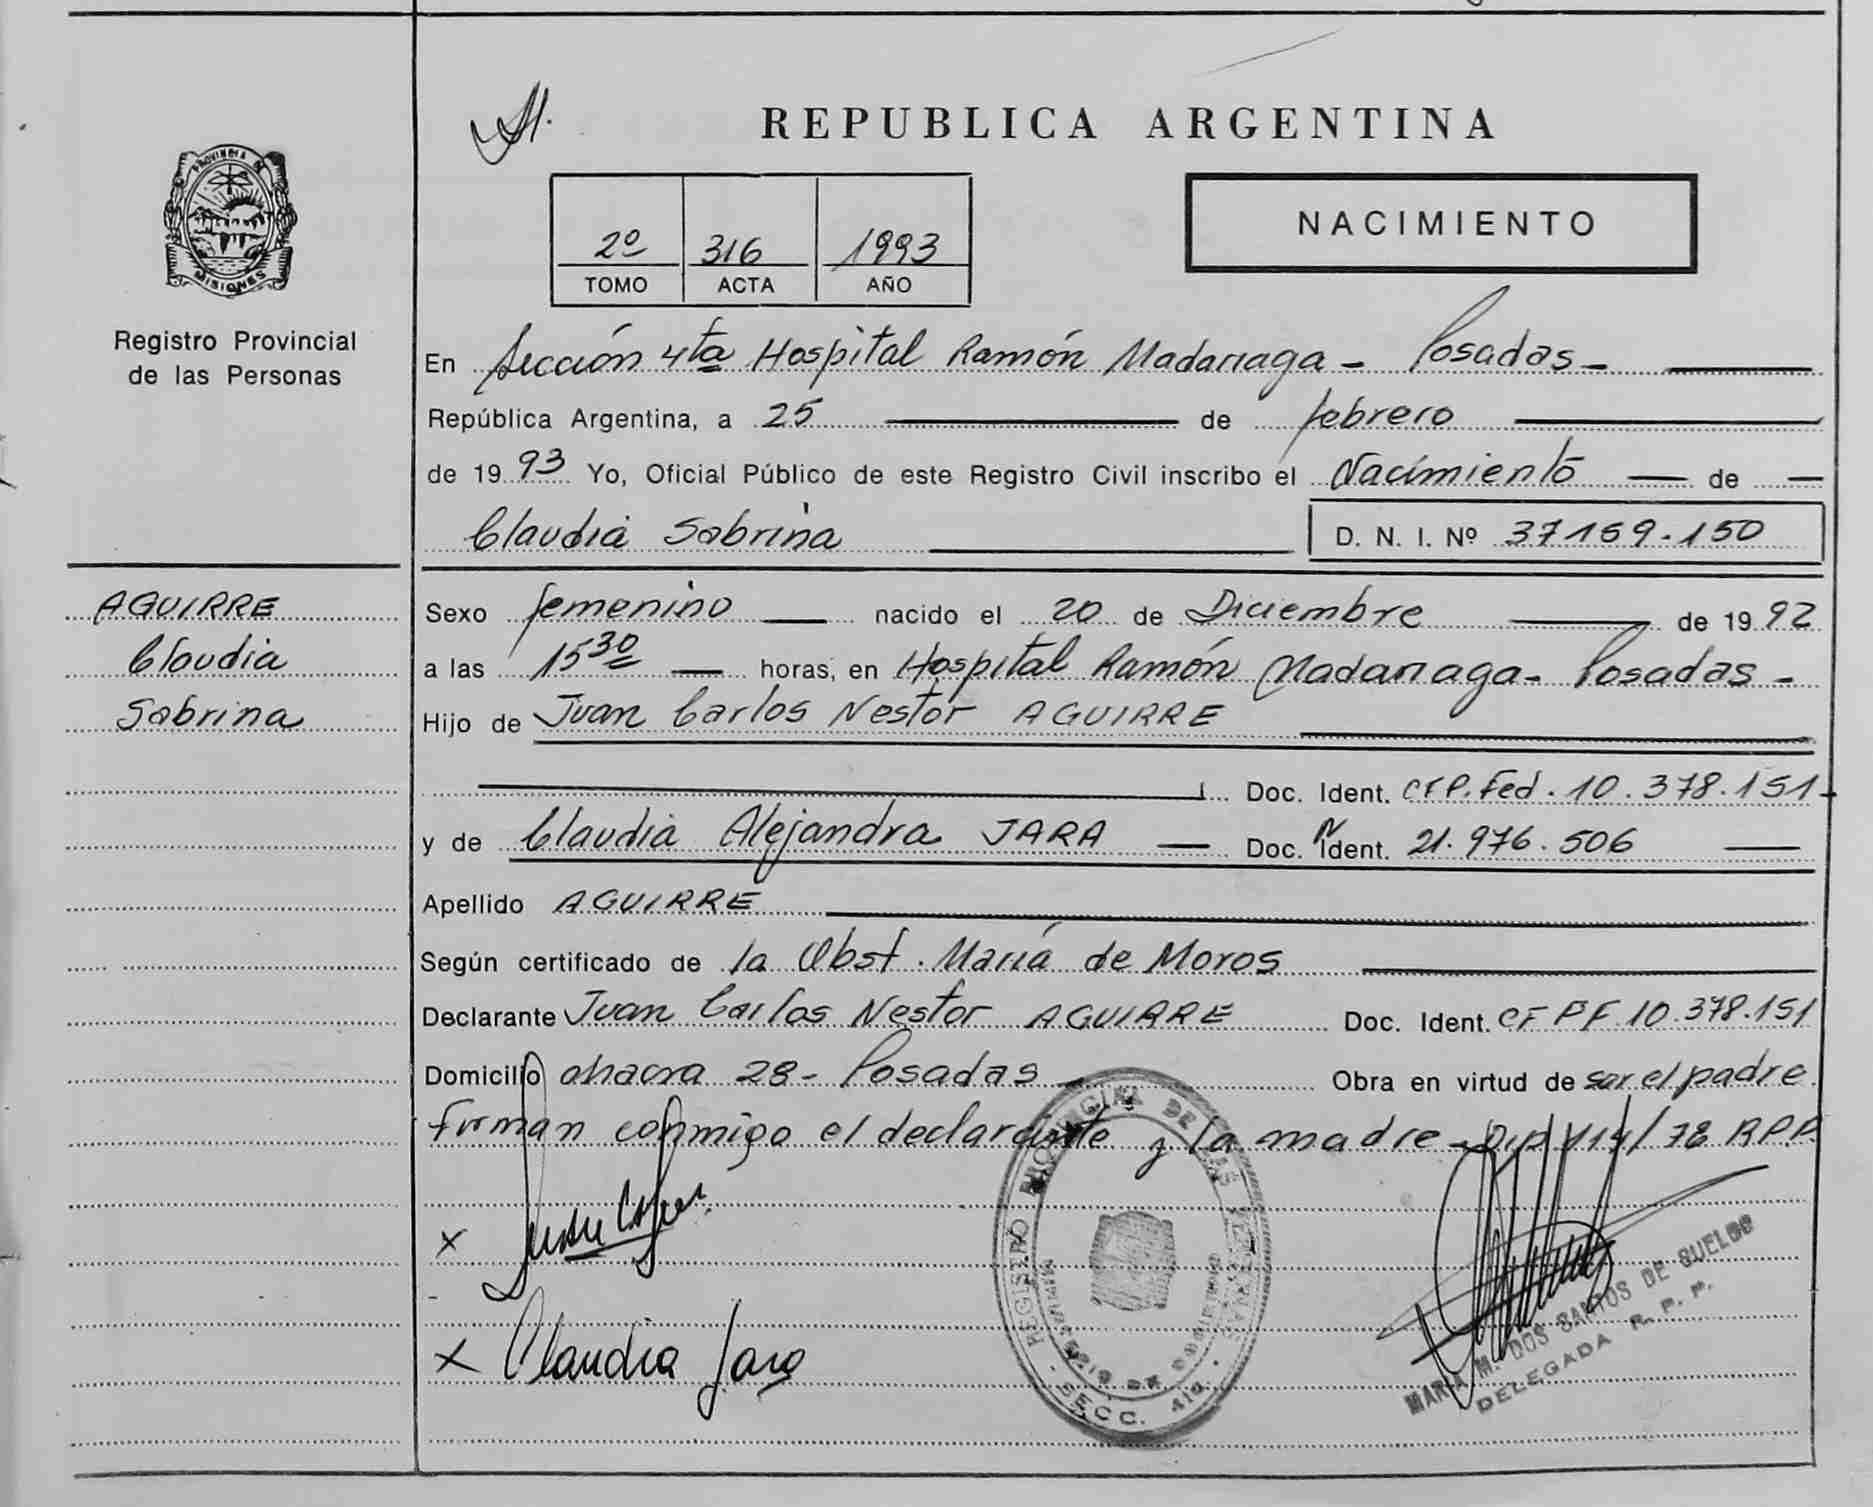 REPUBLICA ARGENTINA
PROVINCIA DE
MISIONES
Registro Provincial
de las Personas
2º 316 1993
TOMO ACTA AÑO
NACIMIENTO
En Sección 4ta Hospital Ramón Madariaga - Posadas -
República Argentina, a 25 de febrero
de 1993 Yo, Oficial Público de este Registro Civil inscribo el Nacimiento de
Claudia Sabrina D. N. I. Nº 37159.150
AGUIRRE
Claudia
Sabrina
Sexo femenino nacido el 20 de Diciembre de 1992
a las 15 30 horas, en Hospital Ramón Madariaga - Posadas -
Hijo de Juan Carlos Nestor AGUIRRE
Doc. Ident. CI P. Fed. 10.378.151
y de Claudia Alejandra JARA Doc. Ident. 21.976.506
Apellido AGUIRRE
Según certificado de la Obst. María de Moros
Declarante Juan Carlos Nestor AGUIRRE Doc. Ident. 10.378.151
Domicilio chacra 28 - Posadas Obra en virtud de ser el padre
firman conmigo el declarante y la madre - /78 RPP
x
x Claudia Jara
REGISTRO PROVINCIAL DE LAS PERSONAS
SECC. 4ta.
MARIA M. DOS SANTOS DE SUELDO
DELEGADA R. P. P.